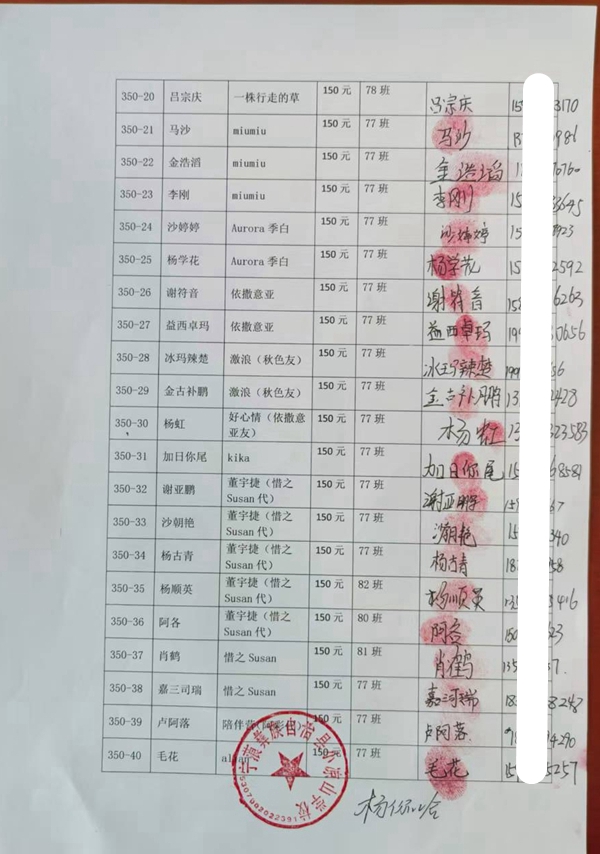 350-20 吕宗庆 一株行走的草 150 元 78 班 吕宗庆 15 3170
350-21 马沙 miumiu 150 元 77 班 马沙 986
350-22 金浩滔 miumiu 150 元 77 班 金浩滔 6760
350-23 李刚 miumiu 150 元 77 班 李刚 15 3645
350-24 沙婷婷 Aurora 季白 150 元 77 班 沙婷婷 15 923
350-25 杨学花 Aurora 季白 150 元 77 班 杨学花 15 2592
350-26 谢符音 依撒意亚 150 元 77 班 谢符音 15 6263
350-27 益西卓玛 依撒意亚 150 元 77 班 益西卓玛 199 0656
350-28 冰玛辣楚 激浪（秋色友） 150 元 77 班 冰玛辣楚 199 36
350-29 金古补鹏 激浪（秋色友） 150 元 77 班 金古补鹏 13 2428
350-30 杨虹 好心情（依撒意 150 元 77 班 杨虹 13 323583
亚友）
350-31 加日你尾 kika 150 元 77 班 加日你尾 15 68581
350-32 谢亚鹏 董宇捷（惜之 150 元 77 班 谢亚鹏 159 67
Susan 代）
350-33 沙朝艳 董宇捷（惜之 150 元 77 班 沙朝艳 15 340
Susan 代）
350-34 杨古青 董宇捷（惜之 150 元 77 班 杨古青 18 58
Susan 代）
350-35 杨顺英 董宇捷（惜之 150 元 82 班 杨顺英 135 416
Susan 代）
350-36 阿各 董宇捷（惜之 150 元 80 班 阿各 150 23
Susan 代）
350-37 肖鹤 惜之 Susan 150 元 81 班 肖鹤 135 7.
350-38 嘉三司瑞 惜之 Susan 150 元 77 班 嘉三司瑞 18 8248
350-39 卢阿落 陪伴 150 元 77 班 卢阿落 4290
350-40 毛花 150 元 77 班 毛花 15 5257
宁蒗彝族自治县小凉山学校